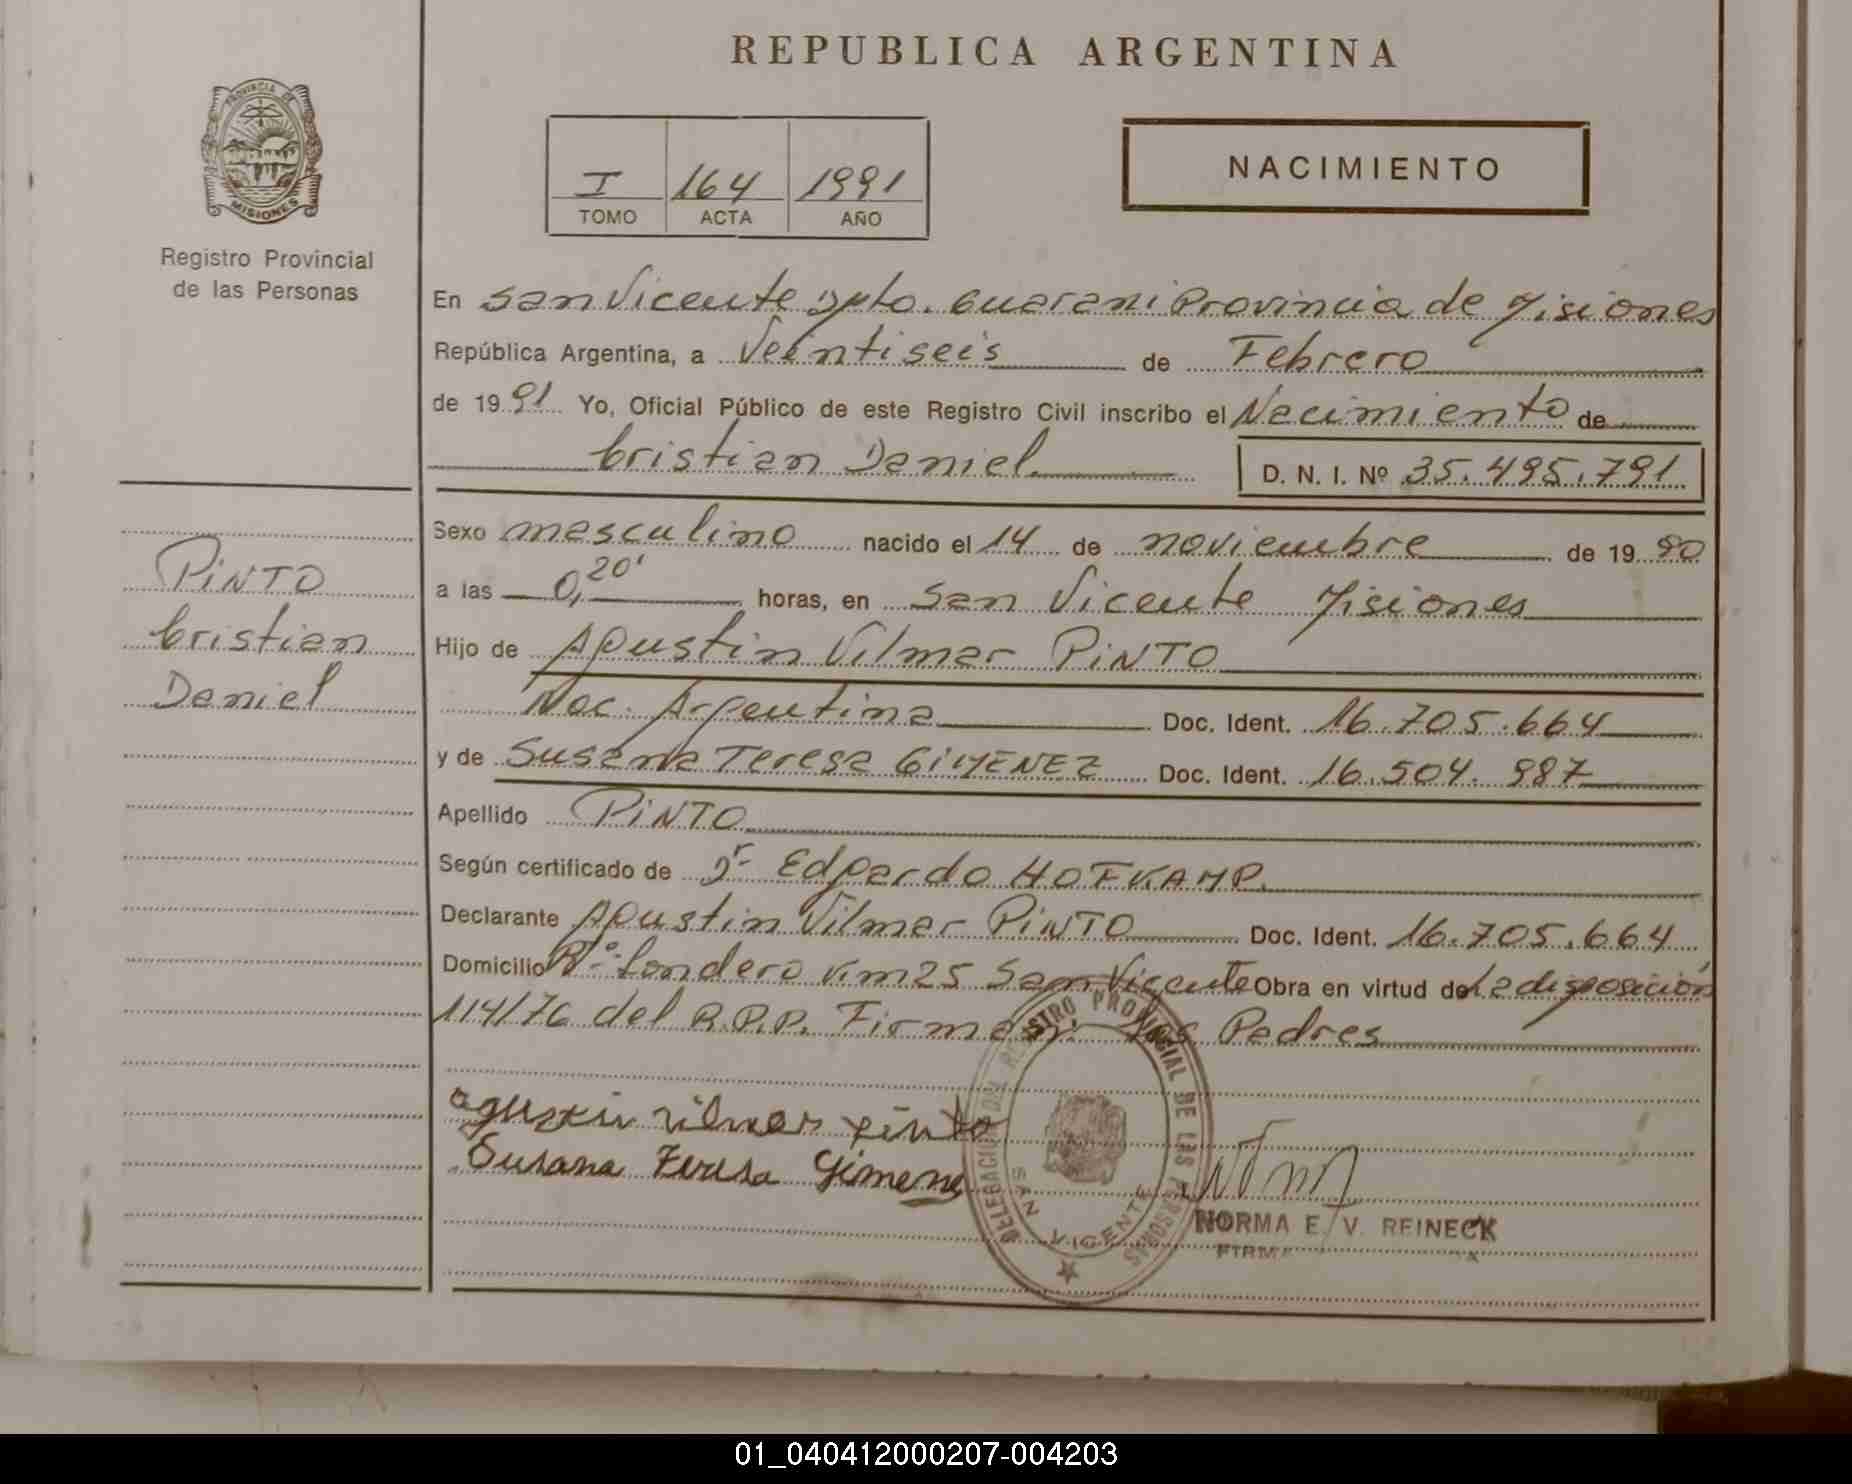 REPUBLICA ARGENTINA
PROVINCIA DE
MISIONES
Registro Provincial
de las Personas
I 164 1991
TOMO ACTA AÑO
NACIMIENTO
En San Vicente Dpto. Guarani Provincia de Misiones
República Argentina, a Veintiseis de Febrero
de 1991 Yo, Oficial Público de este Registro Civil inscribo el Nacimiento de
Cristian Daniel D. N. I. Nº 35.495.791
Sexo masculino nacido el 14 de noviembre de 1990
a las 0,20' horas, en San Vicente Misiones
Hijo de Agustin Vilmar PINTO
Nac. Argentina Doc. Ident. 16.705.664
y de Susana Teresa GIMENEZ Doc. Ident. 16.504.987
Apellido PINTO
Según certificado de Dr. Edgardo HOFKAMP.
Declarante Agustin Vilmar PINTO Doc. Ident. 16.705.664
Domicilio Bº. Londero Km 25 San Vicente Obra en virtud de La disposición
114/76 del R.P.P. Firman: los Padres
PINTO
Cristian
Daniel
agustin vilmar pinto
Susana Teresa Gimenez
DELEGACION DEL REGISTRO PROVINCIAL DE LAS PERSONAS
SAN VICENTE
NORMA E. V. REINECK
FIRMA
01_040412000207-004203